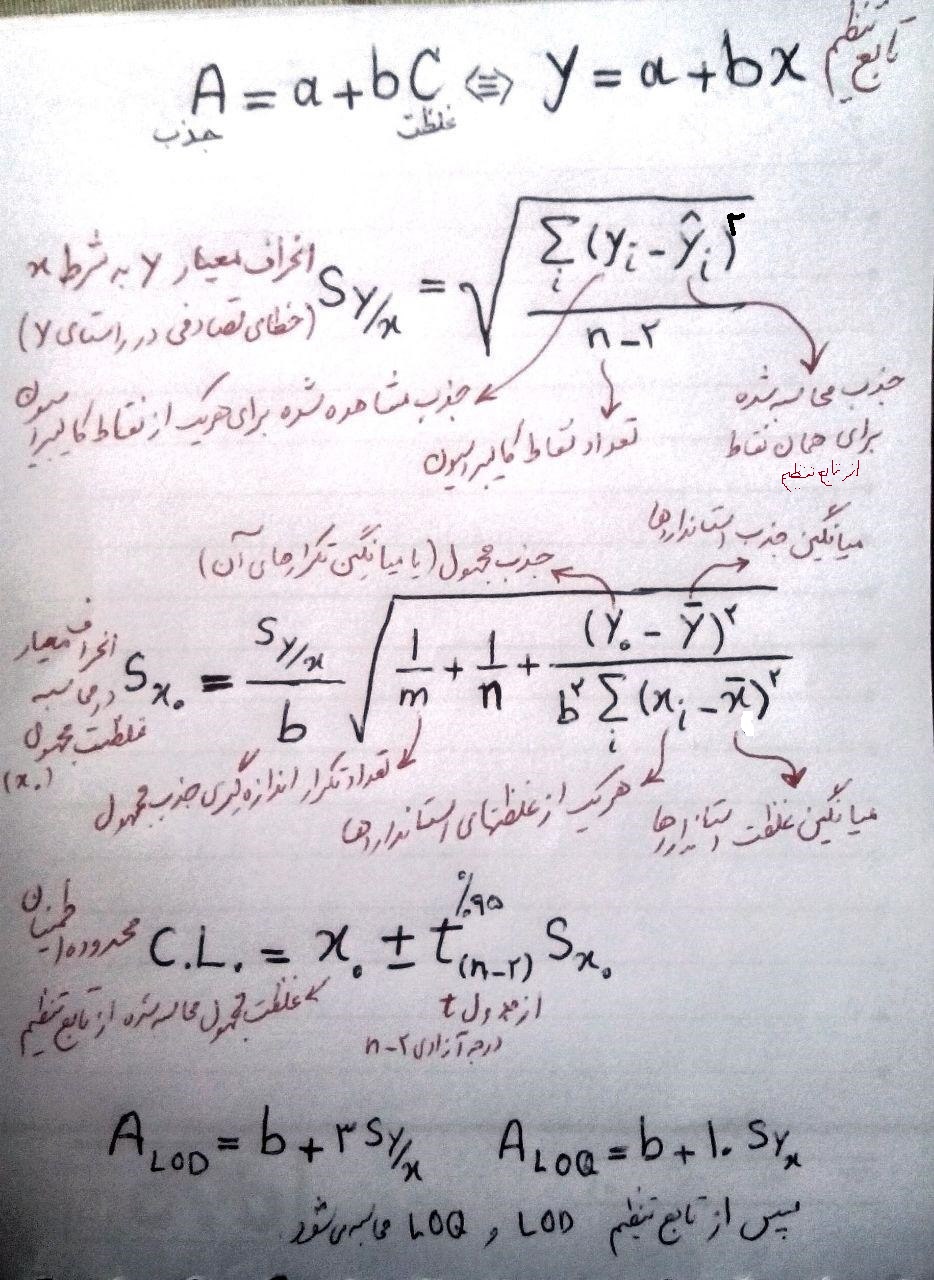 تابع تنظیم
A = a + bC ⇔ y = a + bx
جذب غلظت
انحراف معیار y به شرط x
(خطای تصادفی در راستای y)
S y/x = √( Σi (yi - ŷi)^۲ / n-۲ )
جذب مشاهده شده برای هریک از نقاط کالیبراسیون
تعداد نقاط کالیبراسیون
جذب محاسبه شده
برای همان نقاط
از تابع تنظیم
میانگین جذب استانداردها
جذب مجهول (یا میانگین تکرارهای آن)
انحراف معیار
در محاسبه
غلظت مجهول
(x۰)
S x۰ = S y/x / b √( 1/m + 1/n + (y۰ - ȳ)^۲ / b^۲ Σi (xi - x̄)^۲ )
تعداد تکرار اندازه گیری جذب مجهول
هریک از غلظتهای استانداردها
میانگین غلظت استانداردها
محدوده اطمینان
C.L. = x۰ ± t(n-۲) ٪۹۵ S x۰
غلظت مجهول محاسبه شده از تابع تنظیم
از جدول t
درجه آزادی n-۲
A LOD = b + ۳ S y/x A LOQ = b + ۱۰ S y/x
سپس از تابع تنظیم LOD و LOQ محاسبه می شود.